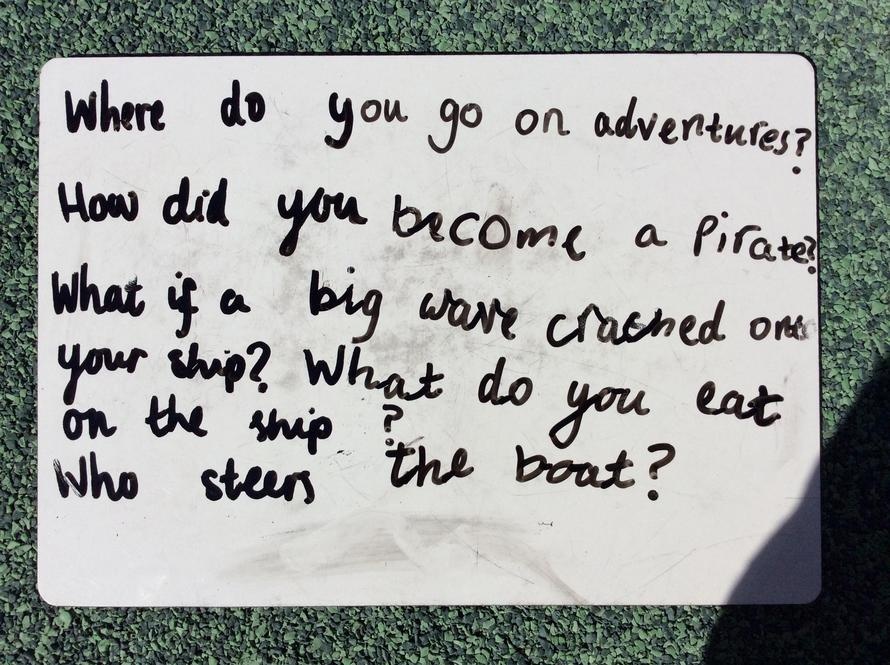 Where do you go on adventures?
How did you become a Pirate?
What if a big wave crashed on
your ship? What do you eat
on the ship ?
Who steers the boat?